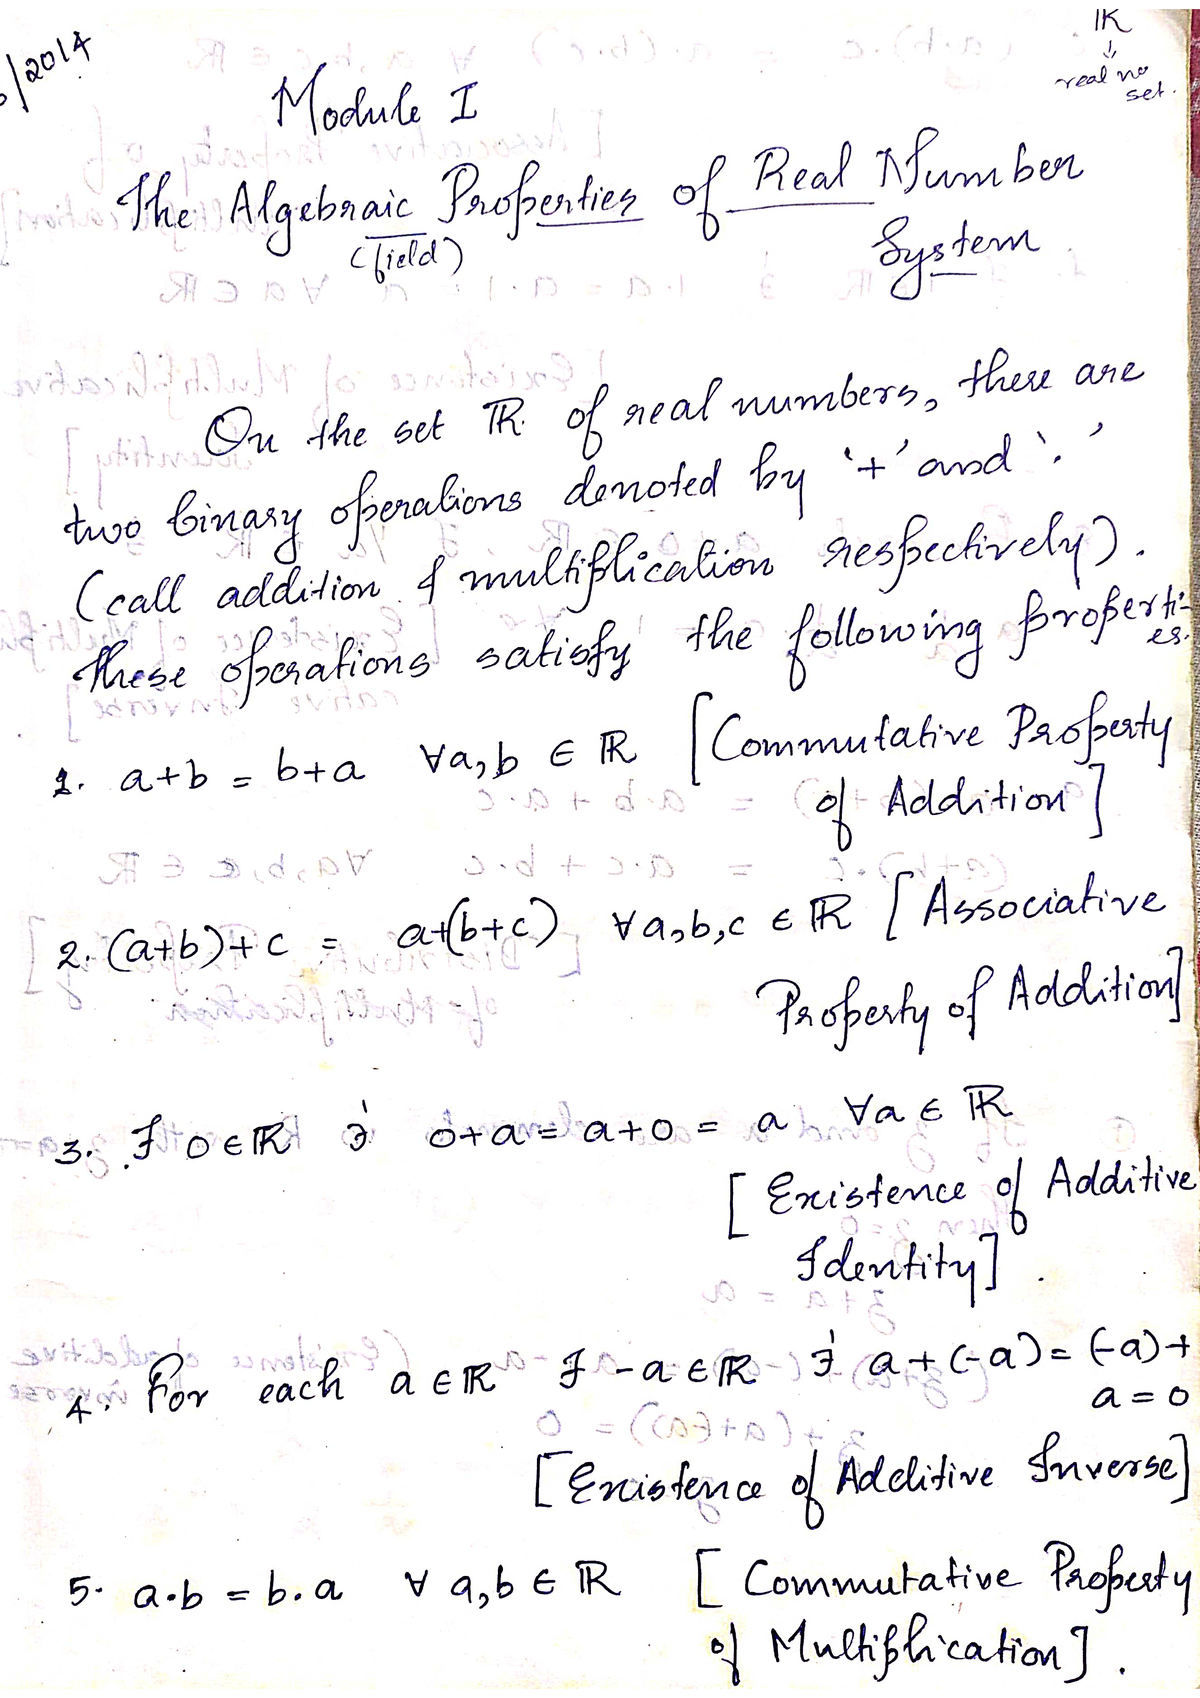 /2014
ℝ
↓
real no
set.
Module I
The Algebraic Properties of Real Number
(field)
System
On the set ℝ of real numbers, there are
two binary operations denoted by '+' and '.'
(call addition & multiplication respectively).
These operations satisfy the following properti-
es.
1. a+b = b+a ∀a,b ∈ ℝ [Commutative Property
of Addition]
2. (a+b)+c = a+(b+c) ∀a,b,c ∈ ℝ [Associative
Property of Addition]
3. ∃ 0 ∈ ℝ ∋ 0+a = a+0 = a ∀a ∈ ℝ
[Existence of Additive
Identity].
4. For each a ∈ ℝ ∃ -a ∈ ℝ ∋ a+(-a) = (-a)+
a = 0
[Existence of Additive Inverse]
5. a.b = b.a ∀ a,b ∈ ℝ [Commutative Property
of Multiplication].